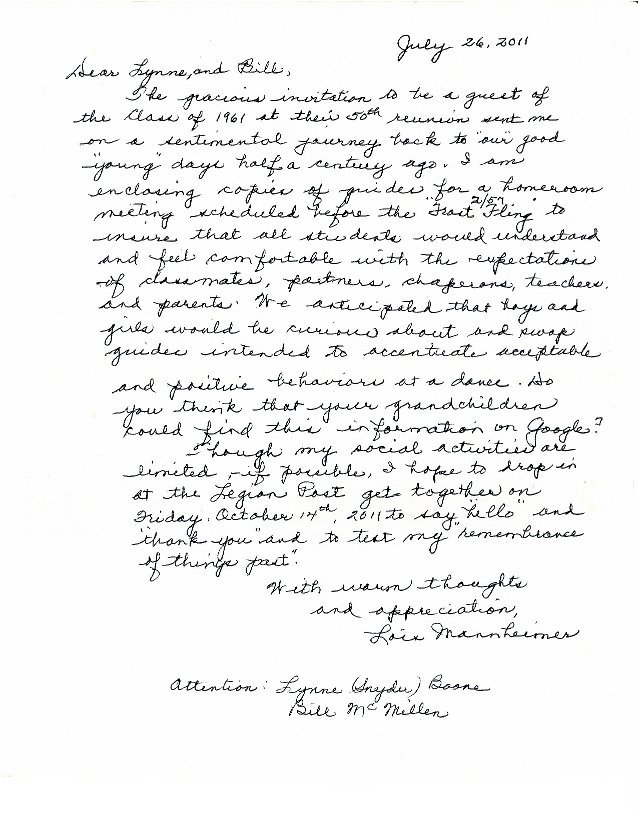 July 26, 2011
Dear Lynne, and Bill,
The gracious invitation to be a guest of
the Class of 1961 at their 50th reunion sent me
on a sentimental journey back to "our good
"young" days half a century ago. I am
enclosing copies of guides for a homeroom
2/57
meeting scheduled before the "Frost Fling" to
insure that all students would understand
and feel comfortable with the expectations
of classmates, partners, chaperons, teachers,
and parents. We anticipated that boys and
girls would be curious about and swap
guides intended to accentuate acceptable
and positive behaviors at a dance. Do
you think that your grandchildren
could find this information on Google?
Though my social activities are
limited, – if possible, I hope to drop in
at the Legion Post get together on
Friday, October 14th, 2011 to say "hello" and
"thank you" and to test my "remembrance
of things past".
With warm thoughts
and appreciation,
Lois Mannheimer
Attention: Lynne (Snyder) Boone
Bill McMillen